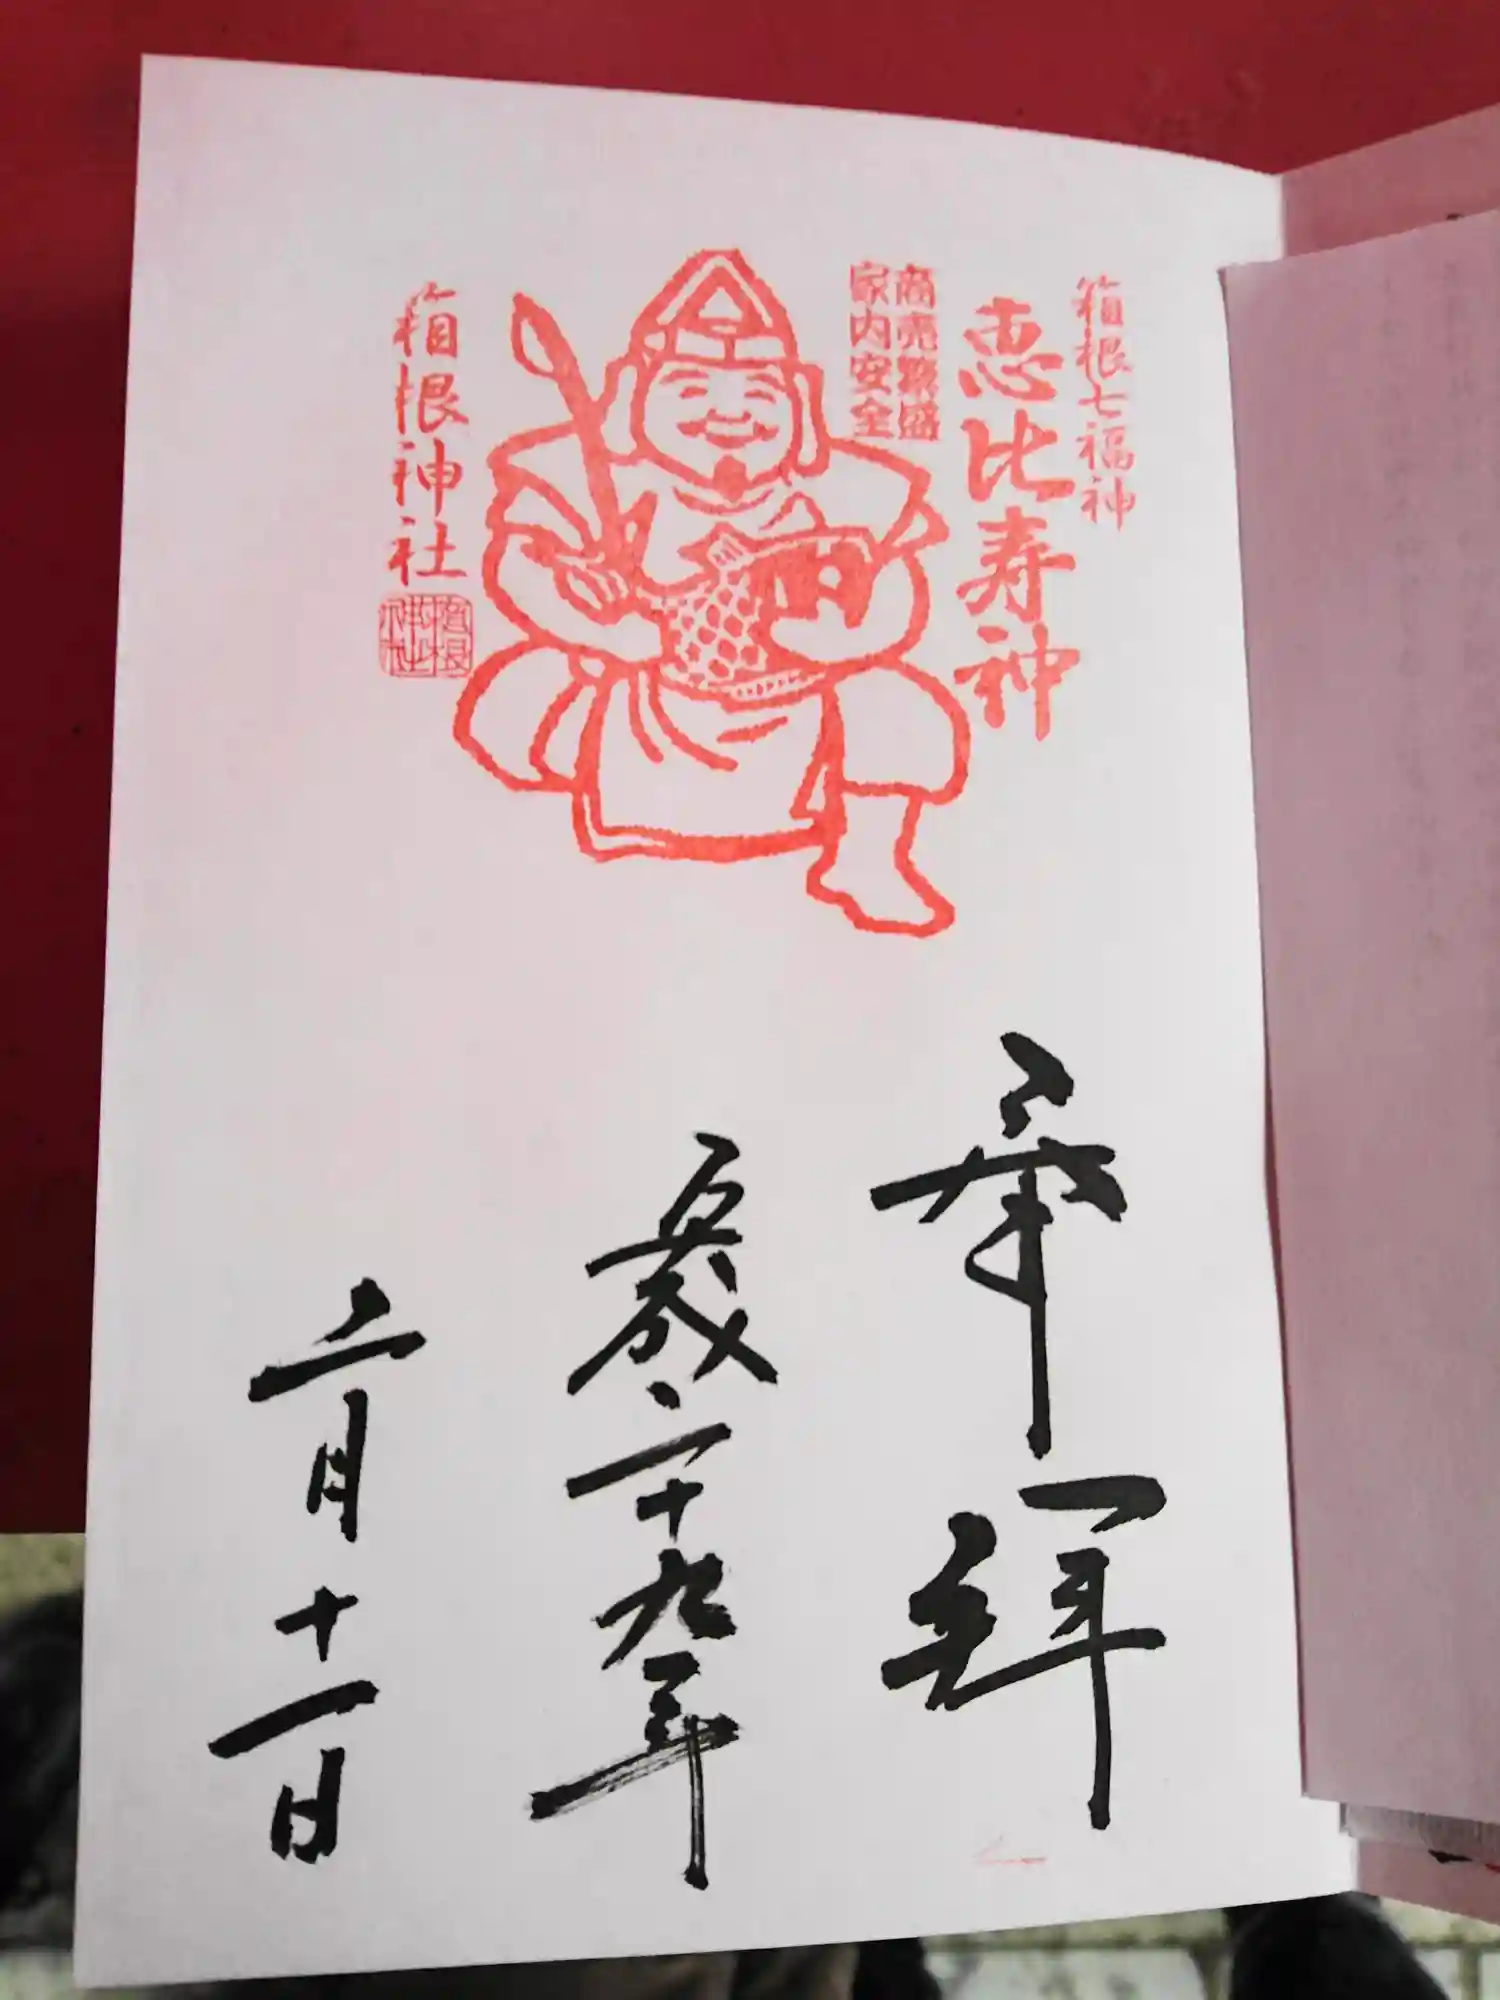 箱根七福神
恵比寿神
商売繁盛
家内安全
箱根神社
奉拝
二十九年
二月十一日